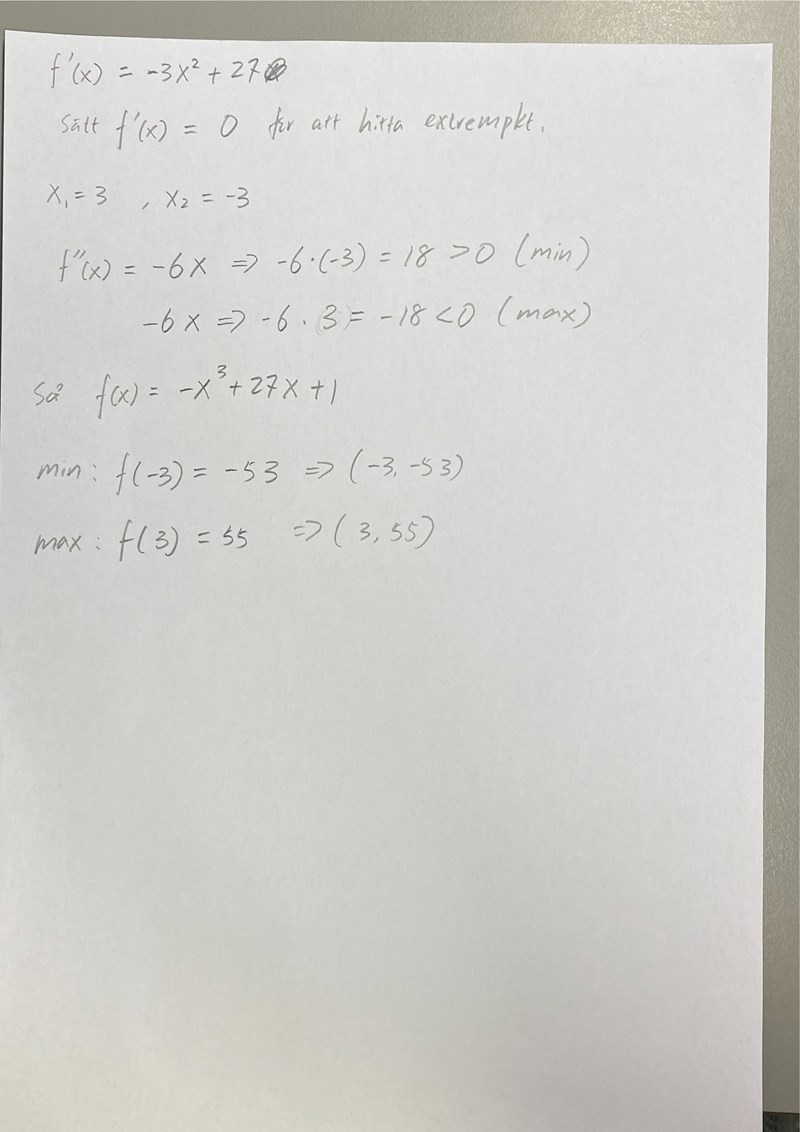 f'(x) = -3x² + 27
Sätt f'(x) = 0 för att hitta extrempkt.
x₁ = 3 , x₂ = -3
f''(x) = -6x => -6·(-3) = 18 > 0 (min)
-6x => -6 · 3 = -18 < 0 (max)
Så f(x) = -x³ + 27x + 1
min : f(-3) = -53 => (-3, -53)
max : f(3) = 55 => (3, 55)